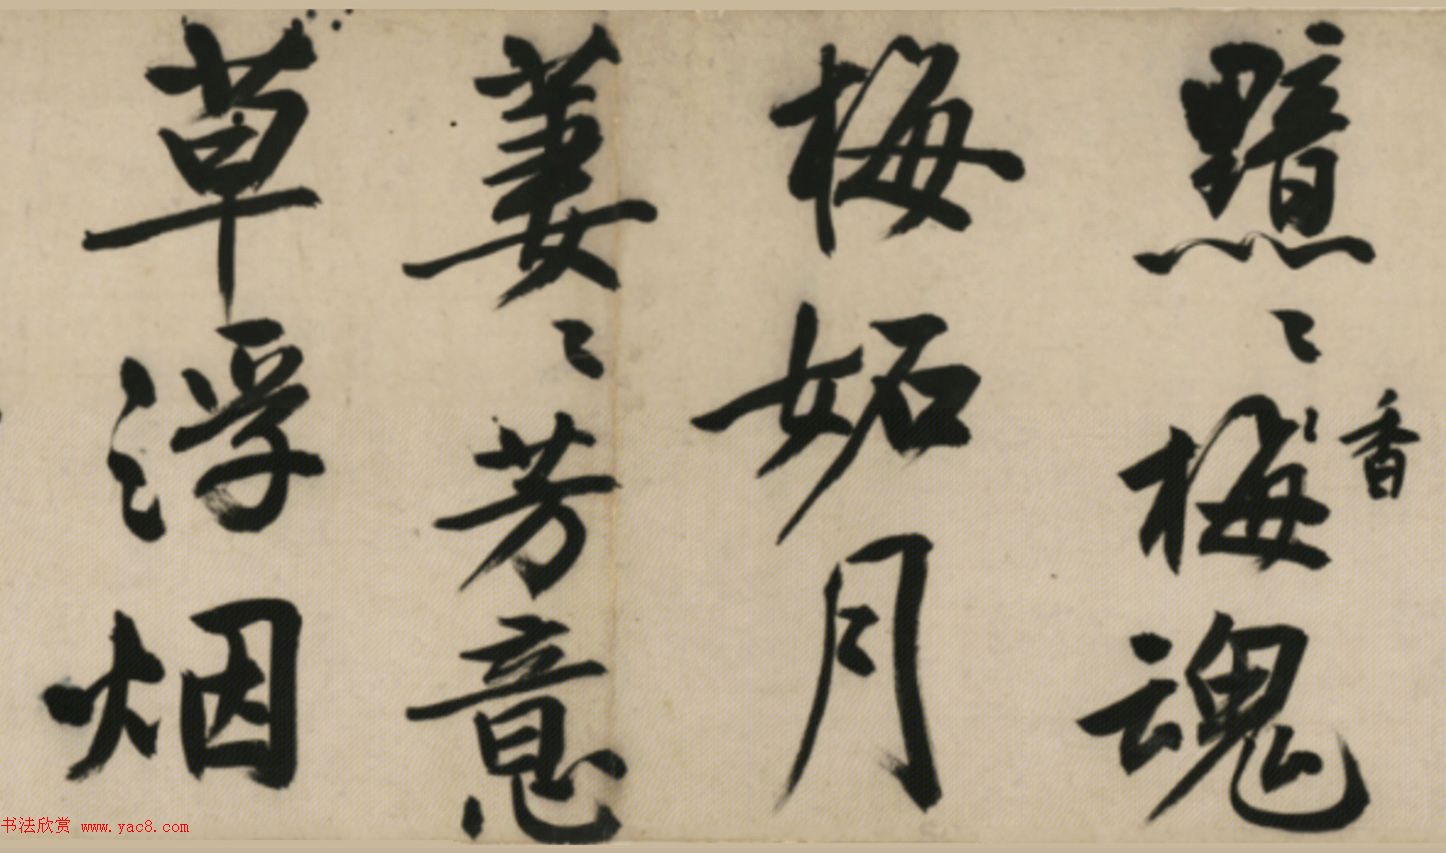 黯〻梅魂
香
梅妬月
萋〻芳意
草浮烟
书法欣赏 www.yac8.com